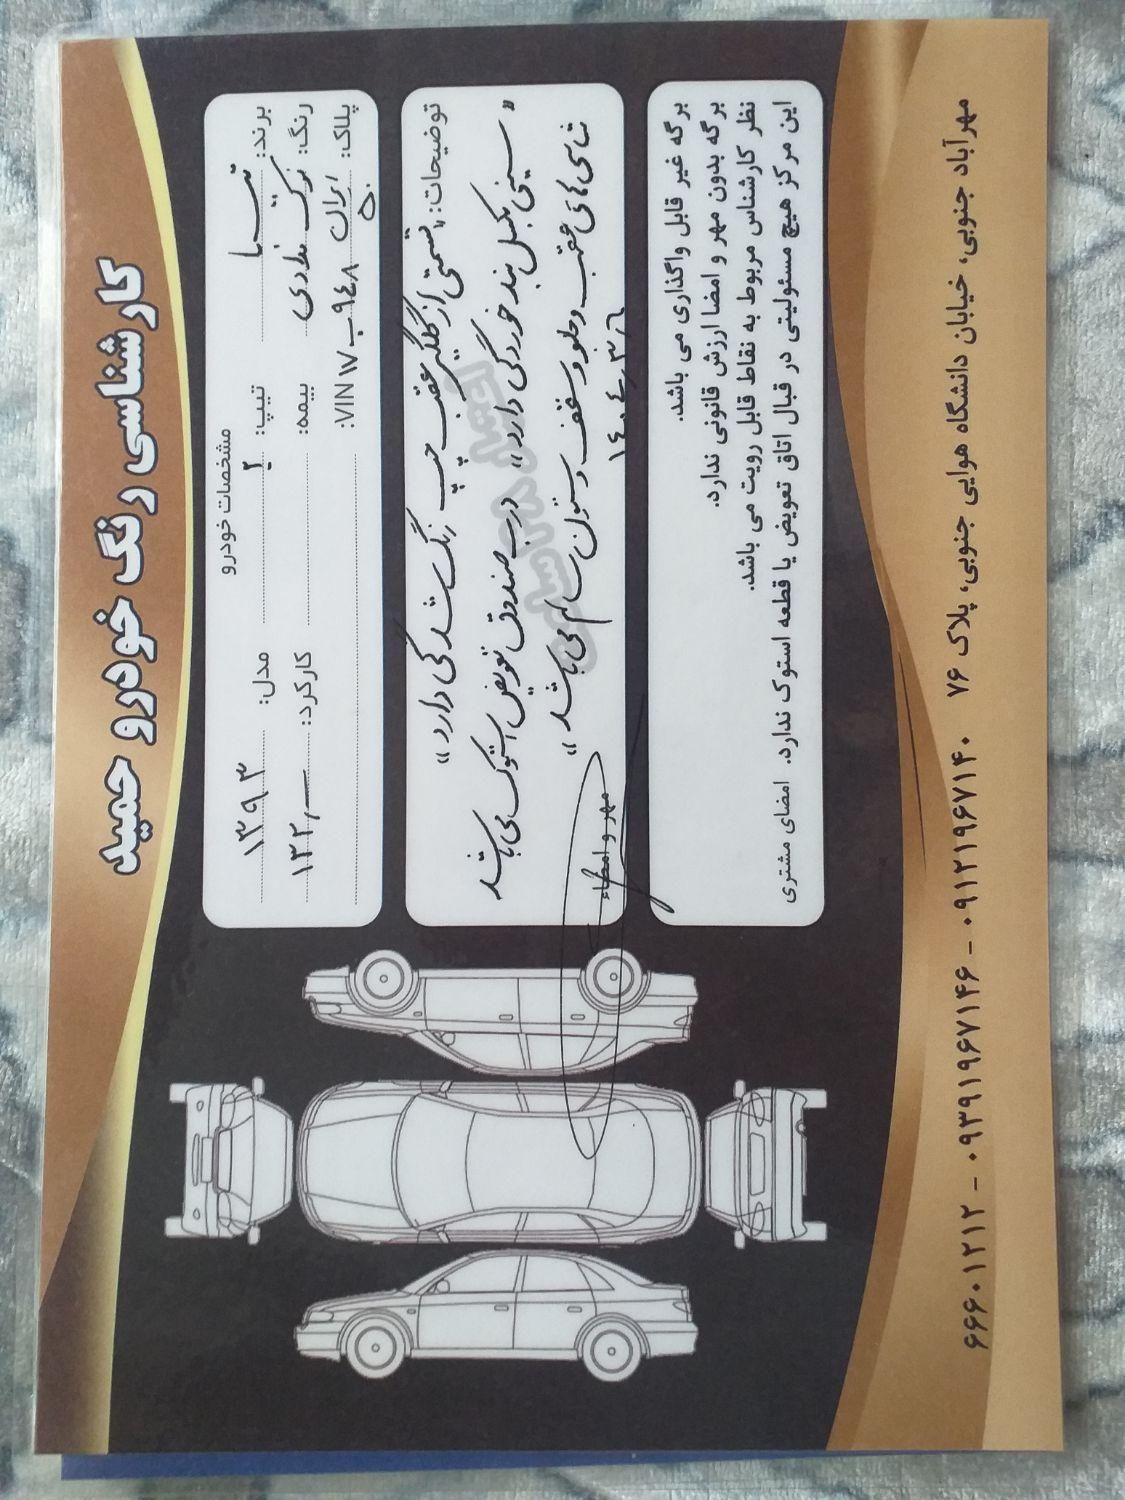 کارشناسی رنگ خودرو حمید
مشخصات خودرو
برند: تیبا تیپ: ۲ مدل: ۱۳۹۳
رنگ: نوک مدادی بیمه: کارکرد: ۱۳۲
پلاک: ایران ۵۰ ۹۴۸ ب ۱۷ VIN:
توضیحات: «قسمتی از گلگیر عقب چپ رنگ شدگی دارد»
«سینی بغل بند خوردگی دارد» درب صندوق تعویض استوک می باشد
شاسی های عقب و جلو و سقف و ستون سالم می باشد»
۱۴۰۴٫۳٫۶
مهر و امضاء
برگه غیر قابل واگذاری می باشد.
برگه بدون مهر و امضا ارزش قانونی ندارد.
نظر کارشناس مربوط به نقاط قابل رویت می باشد.
این مرکز هیچ مسئولیتی در قبال اتاق تعویض یا قطعه استوک ندارد. امضای مشتری
مهرآباد جنوبی، خیابان دانشگاه هوایی جنوبی، پلاک ۷۶
۶۶۶۰۱۲۱۲ - ۰۹۳۹۱۹۶۷۱۴۶ - ۰۹۱۲۱۹۶۷۱۴۰